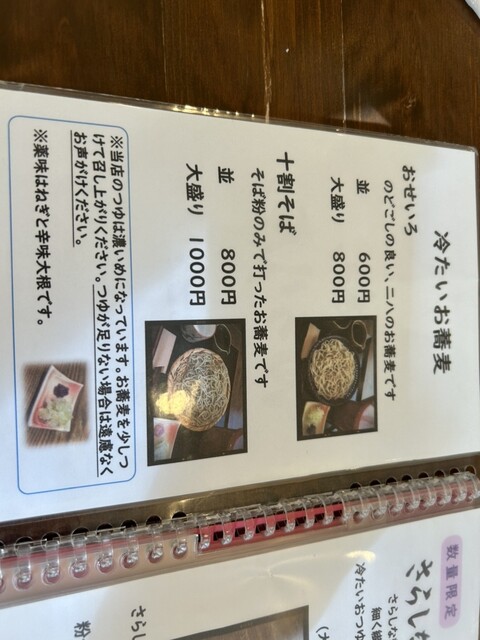 冷たいお蕎麦
おせいろ
のどごしの良い、二八のお蕎麦です
並 600円
大盛り 800円
十割そば
そば粉のみで打ったお蕎麦です
並 800円
大盛り 1000円
※当店のつゆは濃いめになっています。お蕎麦を少しつ
けて召し上がりください。つゆが足りない場合は遠慮なく
お声がけください。
※薬味はねぎと辛味大根です。
数量限定
さらし
さらしな
細く
冷たいおつゆ
(大
さらし
粉